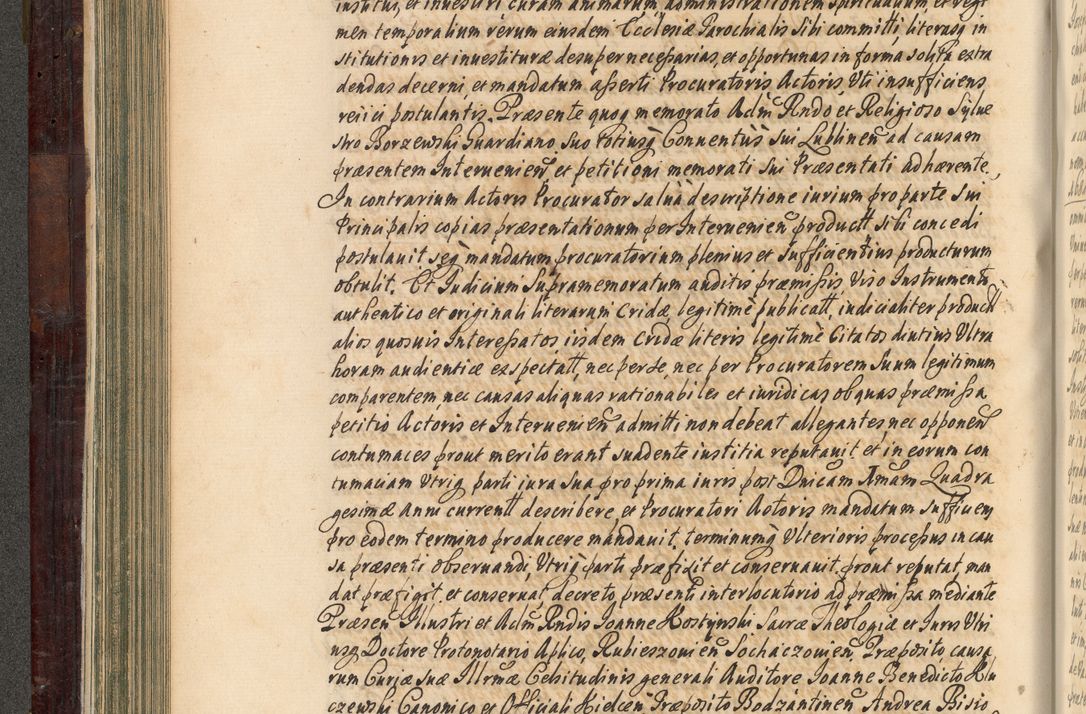 institui, et inuestiri curam animarum administrationem spiritualium et regi
men temporalium rerum eiusdem Ecclesiæ Parochialis Sibi committi, literasq in
stitutionis et inuestituræ desuper necessarias, et opportunas in forma solita extra
dendas decerni, et mandatum asserti Procuratoris Actoris, Uti insufficiens
reiici postulantis. Præsente quoq memorato Adm Rndo et Religioso Sylue
stro Borzewski Guardiano, Suo totiusq Conuentûs sui Lublinen ad causam
præsentem Interuenien, et petitioni memorati Sui Præsentati adhærente.
In contrarium Actoris Procurator saluâ descriptione iurium pro parte Sui
Principalis copias præsentationum per Interuenien productt sibi concedi
postulauit seq mandatum procuratorium plenius et sufficientius producturum
obtulit. Et Iudicium Supramemoratum auditis præmissis, Viso Instrumento
authentico et originali literarum Cridæ, legitimè publicatt, indicialiter productt
alios quosuis Interessatos iisdem Cridæ literis legitimè Citatos diutius Ultra
horam audientiæ expectatt, nec per se, nec per Procuratorem Suum legitimum
comparentem, nec causas aliquas rationabiles et iuridicas ob quas præmissa
petitio Actoris et Interuenien admitti non debeat allegantes, nec opponen
contumaces prout merito erant suadente iustitia reputauit, et in eorum con
tumaciam Utriq parti iura Sua pro prima iuris post Dnicam Imam Quadra
gesimæ Anni currentt describere, et Procuratori Actoris mandatum Sufficien
pro eodem termino producere mandauit, terminumq Ulterioris processus in cau
sa præsenti observandi, Utriq parti præfixit et conseruauit, prout reputat, man
dat præfigit, et conseruat, decreto præsenti interlocutorio ad præmissa mediante
Præsen Illustri et Adm Rndis Ioanne Kostynski Sacræ Theologiæ et Iuris Utri
usq Doctore Protonotario Aplico, Rubieszouien Sochaczouien, Præposito, causa
rum Curiæ Suæ Illrmæ Celsitudinis generali Auditore Ioanne Benedicto Klu
czewski Canonico et Officiali Kielcen Præposito Bodzantinen Andrea Bisio